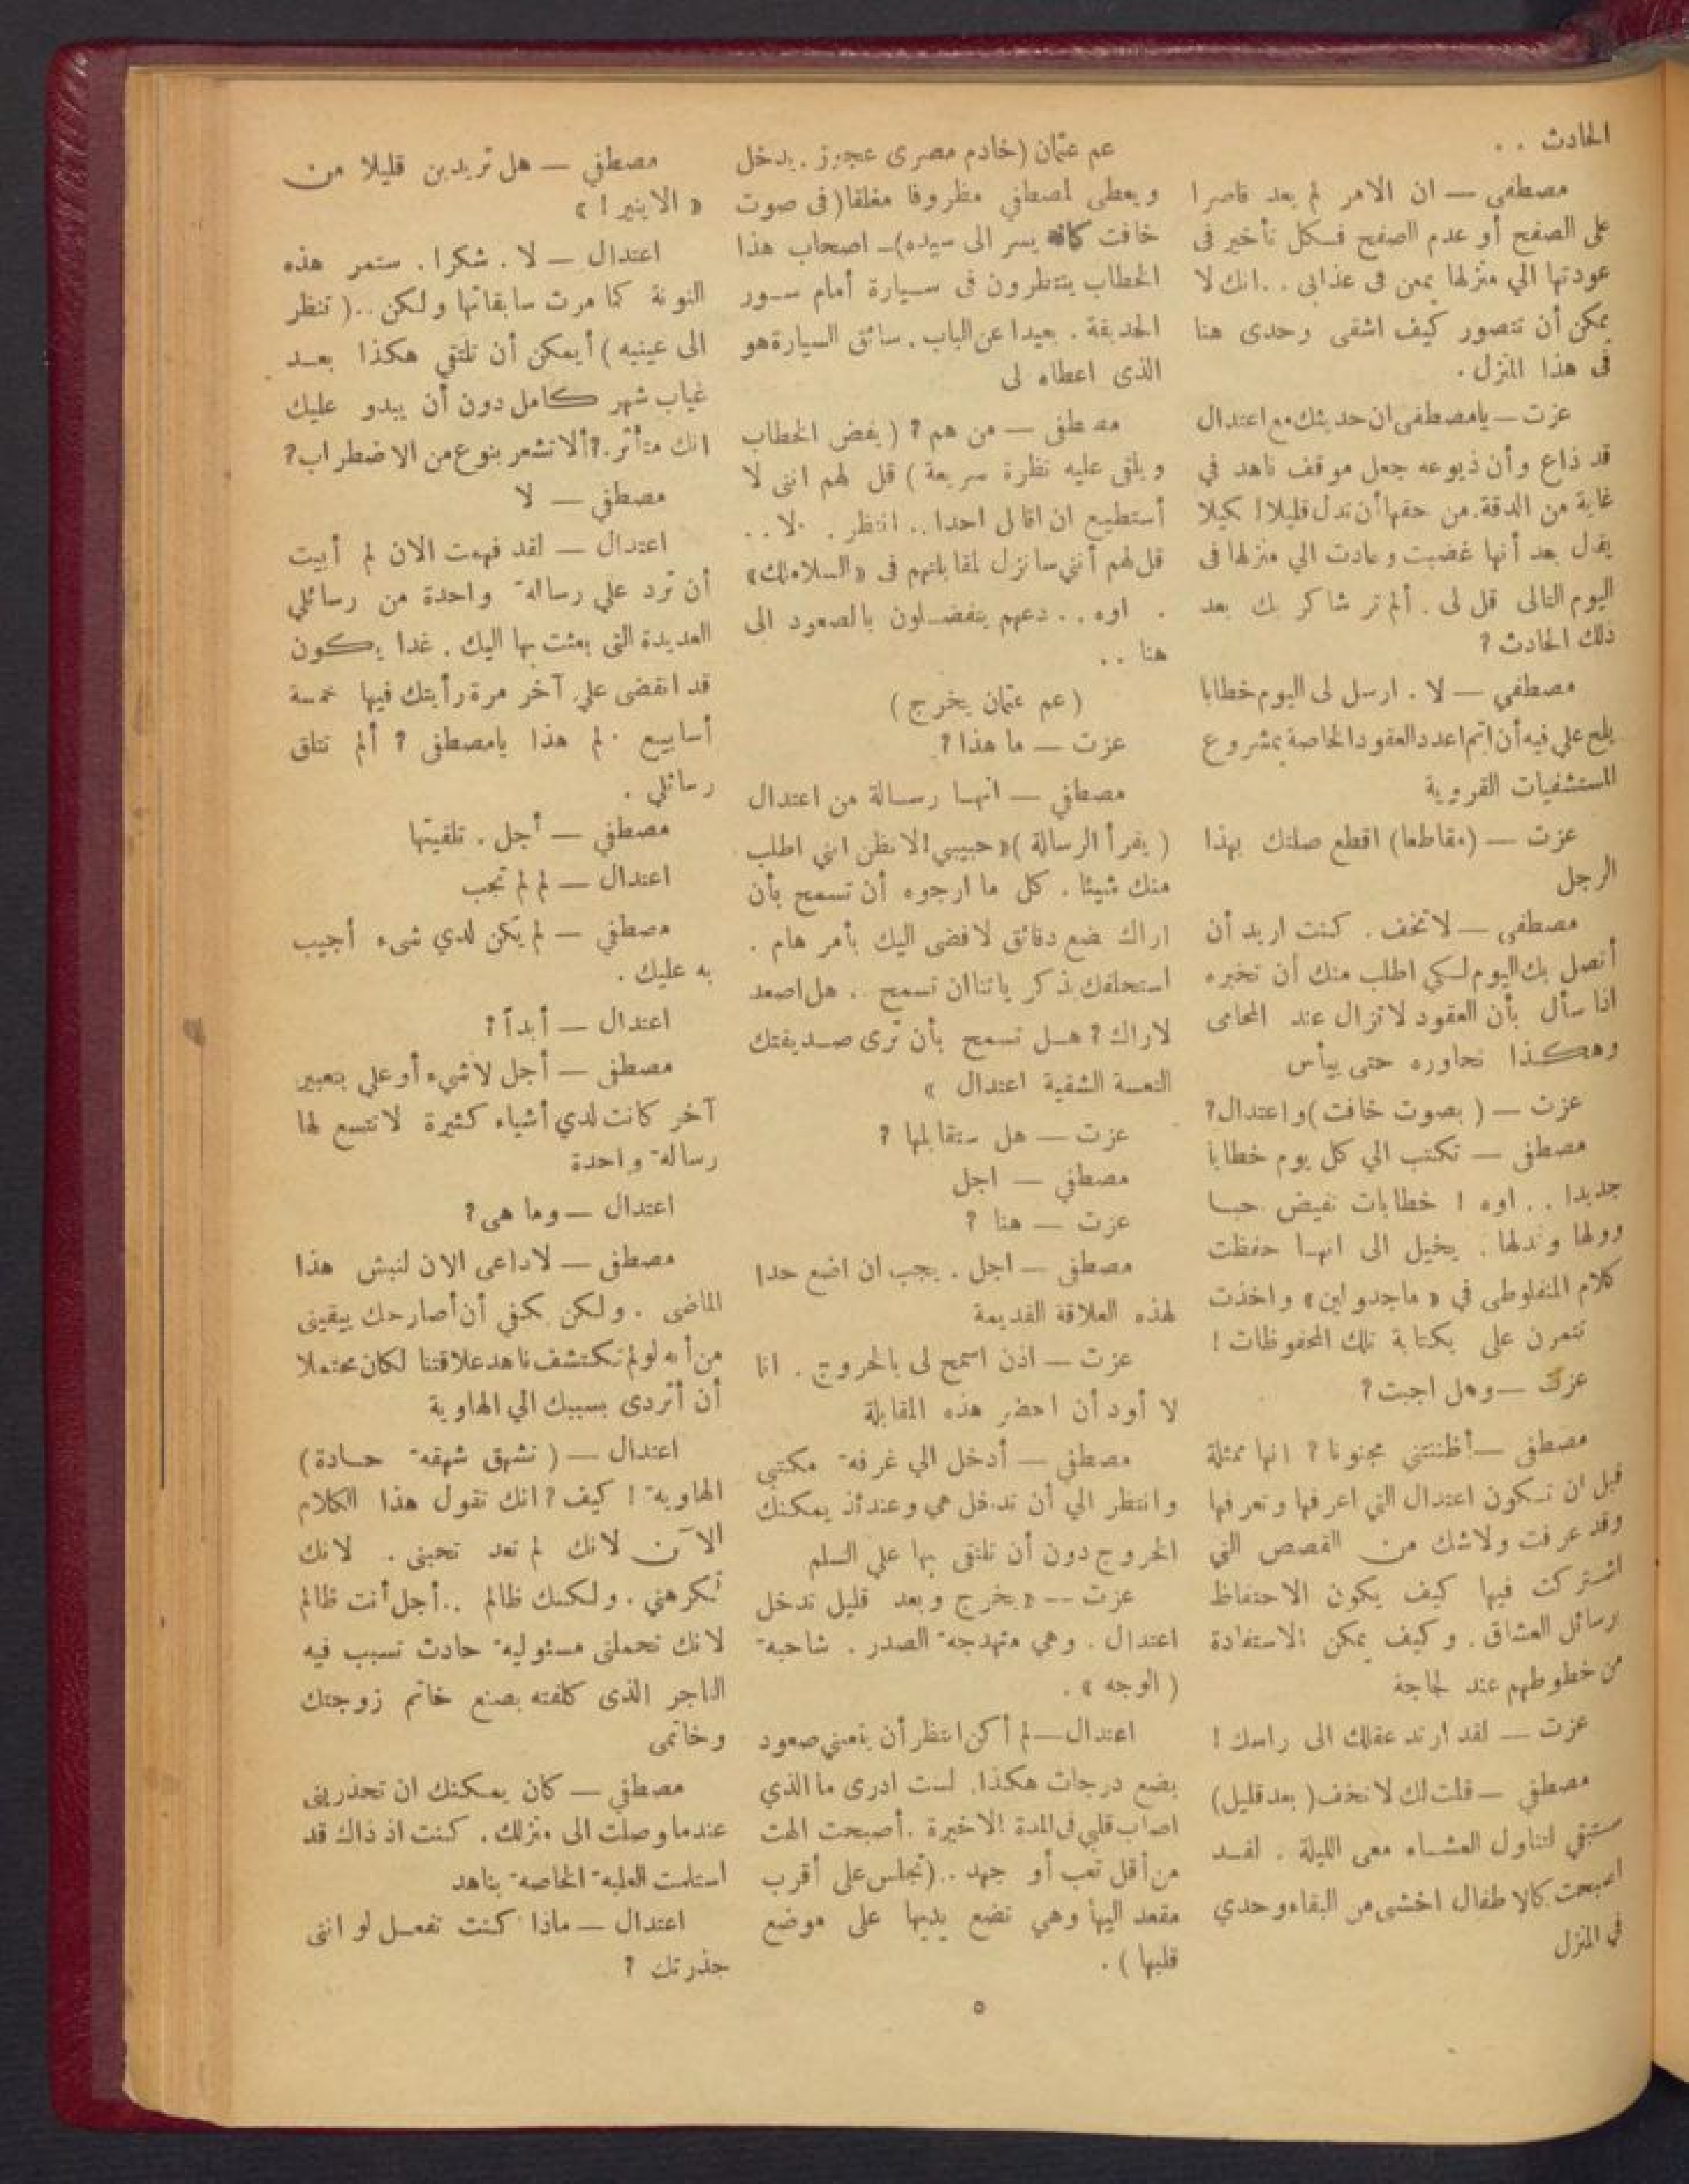 الحادث . .
مصطفى — ان الامر لم يعد قاصرا
على الصفح أو عدم الصفح فكل تأخير فى
عودتها الي منزلها يمعن فى عذابى . . انك لا
يمكن أن تتصور كيف اشقى وحدى هنا
فى هذا المنزل .
عزت — يامصطفى ان حديثك مع اعتدال
قد ذاع وأن ذيوعه جعل موقف ناهد في
غاية من الدقة. من حقها أن تدل قليلا ! كيلا
يقال بعد أنها غضبت وعادت الي منزلها فى
اليوم التالى قل لى . ألم تر شاكر بك بعد
ذلك الحادث ؟
مصطفي — لا . ارسل لى اليوم خطابا
يلح علي فيه أن اتم اعداد العقود الخاصة بمشروع
المستشفيات القروية
عزت — (مقاطعا) اقطع صلتك بهذا
الرجل
مصطفى — لاتخف . كنت اريد أن
أتصل بك اليوم لكي اطلب منك أن تخبره
اذا سأل بأن العقود لاتزال عند المحامى
وهكذا نحاوره حتى ييأس
عزت — ( بصوت خافت ) واعتدال ؟
مصطفى — تكتب الي كل يوم خطابا
جديدا . . اوه ! خطابات تفيض حبا
وولها وتدلها . يخيل الى انها حفظت
كلام المنفلوطى في « ماجدولين » واخذت
تتمرن على يكتابة تلك المحفوظات !
عزت — وهل اجبت ؟
مصطفى — أظننتني مجنونا ؟ انها ممثلة
قبل ان تكون اعتدال التي اعرفها وتعرفها
وقد عرفت ولاشك من القصص التي
اشتركت فيها كيف يكون الاحتفاظ
برسائل العشاق . وكيف يمكن الاستفادة
من خطوطهم عند لحاجة
عزت — لقد ارتد عقلك الى راسك !
مصطفي — قلت لك لاتخف ( بعد قليل)
ستبقي لتناول العشاء معى الليلة . لقد
اصبحت كالاطفال اخشى من البقاء وحدي
في المنزل
عم عثمان (خادم مصرى عجوز . يدخل
ويعطى لمصطفي مظروفا مغلقا (فى صوت
خافت كانه يسر الى سيده) — اصحاب هذا
الخطاب ينتظرون فى سيارة أمام سور
الحديقة . بعيدا عن الباب . سائق السيارة هو
الذى اعطاه لى
مصطفى — من هم ؟ ( يفض الخطاب
ويلقى عليه نظرة سريعة ) قل لهم اننى لا
أستطيع ان اقابل احدا .. انتظر . لا . .
قل لهم أنني سانزل لمقابلتهم فى «السلاملك»
. اوه . . دعهم يتفضلون بالصعود الى
هنا . .
( عم عثمان يخرج )
عزت — ما هذا ؟
مصطفي — انها رسالة من اعتدال
( يقرأ الرسالة ) « حبيبي ! لا تظن انني اطلب
منك شيئا . كل ما ارجوه أن تسمح بأن
اراك بضع دقائق لافضى اليك بأمر هام .
استحلفك بذكرياتنا ان تسمح . . هل اصعد
لاراك ؟ هل تسمح بأن ترى صديقتك
التعسة الشقية اعتدال »
عزت — هل ستقابلها ؟
مصطفي — اجل
عزت — هنا ؟
مصطفى — اجل . يجب ان اضع حدا
لهذه العلاقة القديمة
عزت — اذن اسمح لى بالخروج . انا
لا أود أن احضر هذه المقابلة
مصطفي — أدخل الي غرفة مكتبي
وانتظر الي أن تدخل هي وعندئذ يمكنك
الخروج دون أن تلتقى بها علي السلم
عزت -- « يخرج وبعد قليل تدخل
اعتدال . وهي متهدجة الصدر . شاحبة
( الوجه » .
اعتدال — لم أكن انتظر أن يتعبني صعود
بضع درجات هكذا . لست ادرى ما الذي
اصاب قلبي فى المدة الاخيرة . أصبحت الهث
من أقل تعب أو جهد .. (تجلس على أقرب
مقعد اليها وهي تضع يديها على موضع
قلبها ) .
مصطفي — هل تريدين قليلا من
« الايتير ! »
اعتدال — لا . شكرا . ستمر هذه
النوبة كما مرت سابقاتها ولكن .. ( تنظر
الى عينيه ) أيمكن أن نلتقي هكذا بعد
غياب شهر كامل دون أن يبدو عليك
انك متأثر.؟ ألا تشعر بنوع من الاضطراب؟
مصطفي — لا
اعتدال — لقد فهمت الان لم أبيت
أن ترد علي رسالة واحدة من رسائلي
العديدة التى بعثت بها اليك . غدا يكون
قد انقضى علي آخر مرة رأيتك فيها خمسة
أسابيع . لم هذا يامصطفى ؟ ألم تتلق
رسائلي .
مصطفي — أجل . تلقيتها
اعتدال — لم لم تجب
مصطفي — لم يكن لدي شىء أجيب
به عليك .
اعتدال — أبدآ ؟
مصطفى — أجل لاشيء أو علي بتعبير
آخر كانت لدي أشياء كثيرة لاتتسع لها
رسالة واحدة
اعتدال — وما هى ؟
مصطفى — لاداعى الان لنبش هذا
الماضى . ولكن يكفي أن أصارحك بيقينى
من أنه لو لم تكتشف ناهد علاقتنا لكان محتملا
أن أتردى بسببك الي الهاوية
اعتدال — ( تشهق شهقة حادة)
الهاوية ! كيف ؟ انك تقول هذا الكلام
الآن لانك لم تعد تحبنى . لانك
تكرهني . ولكنك ظالم .. أجل أنت ظالم
لانك تحملنى مسئولية حادث تسبب فيه
التاجر الذى كلفته بصنع خاتم زوجتك
وخاتمى
مصطفي — كان يمكنك ان تحذرينى
عندما وصلت الى منزلك . كنت اذ ذاك قد
استلمت العلبة الخاصة بناهد
اعتدال — ماذا كنت تفعل لو اننى
حذرتك ؟
٥